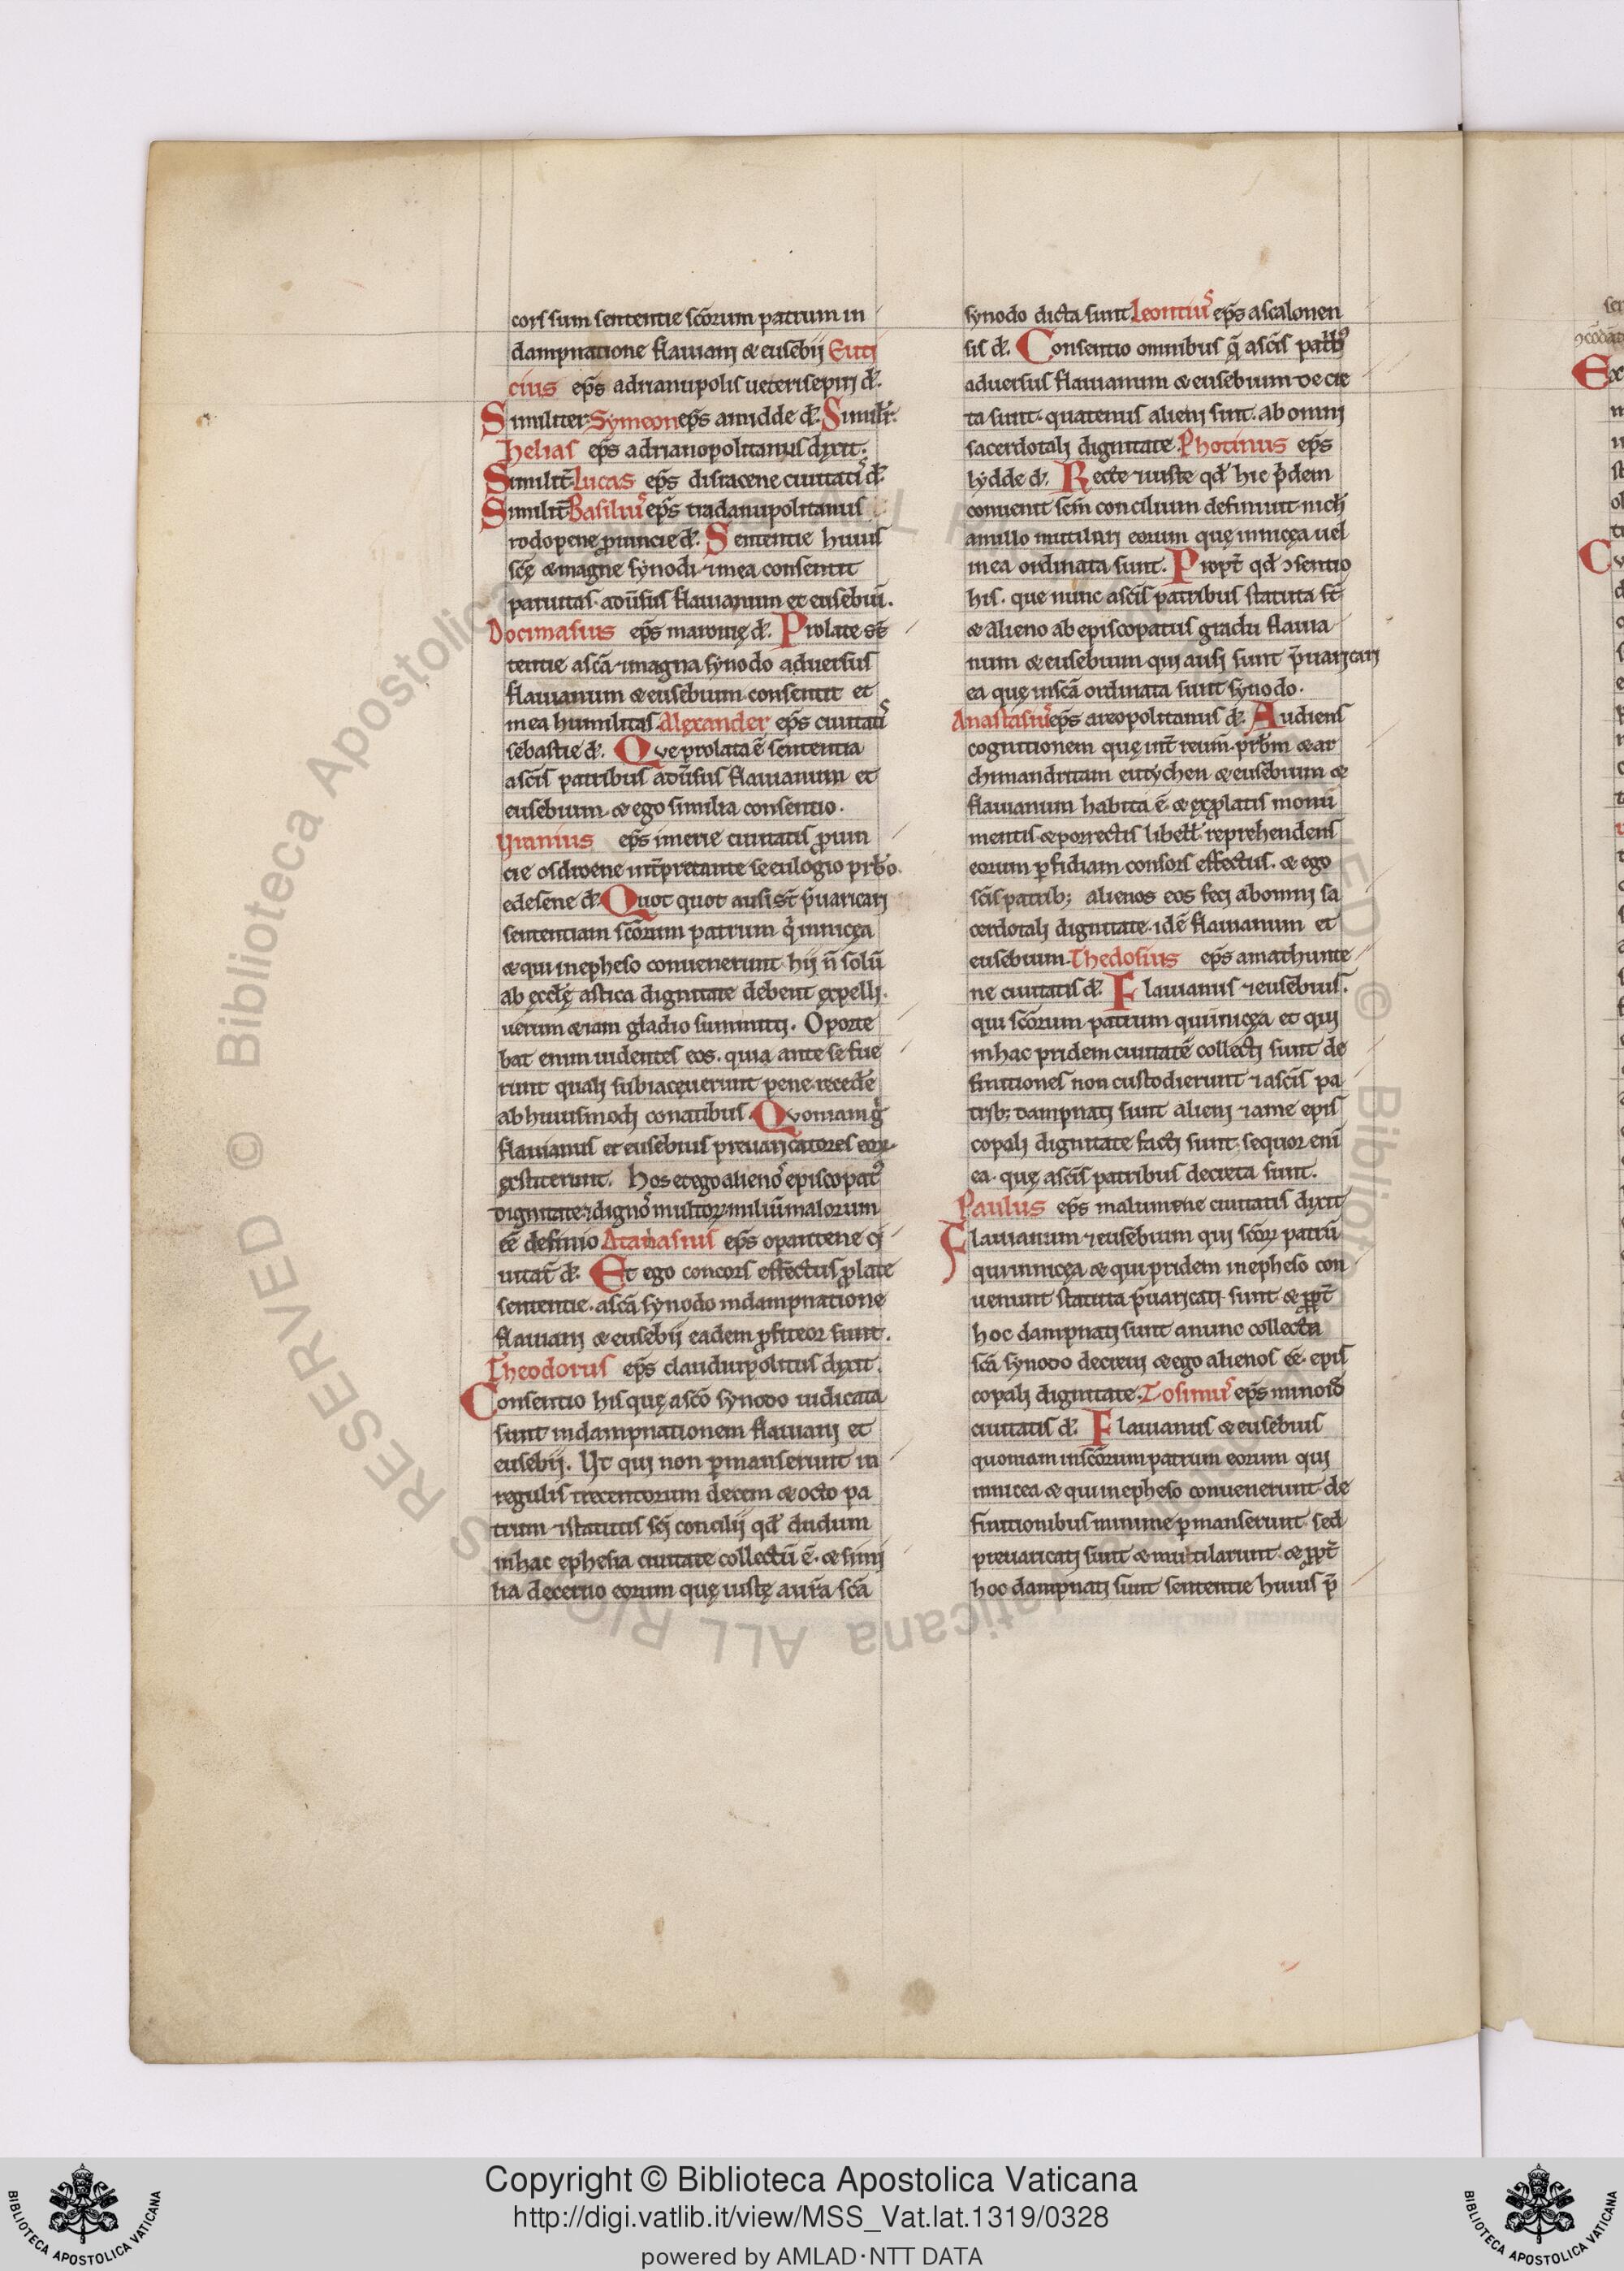 cors sum sententie scōrum patrum in
dampnatione flauianj & eusebij Euti
cius ep̄s adrianupolis ueterisepiri d̄.
Similiter. Symeon ep̄s amidde d̄. Similr̄.
Helias ep̄s adrianopolitanus dyxit.
Similit̄. Lucas ep̄s disracene ciuitatis d̄.
Similit̄. Basilius ep̄s tradanupolitanus
rodopene ꝓuincie d̄. Sententie huius
scę & magne synodi ⁊ mea consentit
paruitas. adūsus flauianum et eusebiū.
Docimasius ep̄s maronię d̄. Prolate sē
tentie ascā ⁊ magna synodo aduersus
flauianum & eusebium consentit et
mea humilitas. Alexander ep̄s ciuitatis
sebastie d̄. Qve prolata ē sententia
ascīs patribus adūsus flauianum et
eusebium. & ego similia consentio.
Vranius ep̄s imerie ciuitatis ꝓuin
cie osdroene int̄pretante se eulogio prb̄o.
edesene d̄. Quot quot ausi st̄ p̄uaricari
sententiam scōrum patrum q̄ innicęa
& qui inepheso conuenerunt. hij n̄ solū
ab ęcclę astica dignitate debent ęxpelli.
uerum &iam gladio summitti. Oporte
bat enim uidentes eos. quia ante se fue
runt quali subiacęuerunt pene recedē
ab huiusmodi conatibus. Qvoniam ḡ
flauianus et eusebius preuaricatores eoꝝ
ęxstiterunt. Hos et ego alienos episcopat᾿
dignitate ⁊ dignos multoꝝ miliū malorum
eē definio Atanasius ep̄s opaintene ci
uitat̄ d̄. Et ego concors effectus ꝓlate
sententie. ascā synodo indampnatione
flauianj & eusebij eadem ꝓfiteor sunt.
Theodorus ep̄s claudiupolitus dyxit.
Consentio his quę ascō synodo iudicata
sunt indampnationem flauianj et
eusebij. Vt qui non ꝑmanserunt in
regulis trecentorum decem & octo pa
trum ⁊ statutis scī concilij qd̄ dudum
inhac ephesia ciuitate collectū ē. & simi
lia decerno eorum quę iustę aur̄a scā
synodo dicta sunt. Leontius ep̄s ascalonen
sis d̄. Consentio omnibus q̄ ascīs patrib᾿
aduersus flauianum & eusebium decre
ta sunt. quatenus alieni sint. ab omni
sacerdotali dignitate. Photinus ep̄s
lydde d̄. Recte ⁊ iuste qd̄ hic p̄dem
conuenit scm̄ concilium definiuit. nich̄
amillo mutilari eorum quę innicęa uel
inea ordinata sunt. Propt̄ qd̄ ↄsentio
his. que nunc ascīs patribus statuta st̄
& alieno ab episcopatus gradu flauia
num & eusebium qui ausi sunt p̄uaricari
ea quę inscā ordinata sunt synodo.
Anastasius ep̄s areopolitanus d̄. Audiens
cognitionem quę int̄ reum̄. prb̄m & ar
chimandritam eutychen & eusebium &
flauianum habita ē. & ęxꝓlatis monu
mentis & porrectis libell̄ reprehendens
eorum ꝑfidiam consors effectus. & ego
scīs patrib; alienos eos feci abomni sa
cerdotali dignitate. idē flauianum et
eusebium. Thedosius ep̄s amathunte
ne ciuitatis d̄. Flauianus ⁊ eusebius.
qui scōrum patrum qui innicęa et qui
inhac pridem ciuitatē collecti sunt de
finitiones non custodierunt ⁊ ascīs pa
trib; dampnati sunt alieni ⁊ ame epis
copali dignitate facti sunt. sequor eni
ea. quę ascīs patribus decreta sunt.
Paulus ep̄s malumene ciuitatis dyxit
Flauianum ⁊ eusebium qui scōꝝ patrū
qui innicęa & qui pridem inepheso con
uenunt statuta p̄uaricati sunt & ꝓpt̄
hoc dampnati sunt anunc collecta
scā synodo decreui & ego alienos eē. epis
copali dignitate. Zosimus ep̄s minoid̄
ciuitatis d̄. Flauianus & eusebius
quoniam inscōrum patrum eorum qui
innicea & qui inepheso conuenerunt. de
finitionibus minime ꝑmanserunt. sed
preuaricati sunt & mutilarunt. & ꝓpt̄
hoc dampnati sunt sententie huius p̄
Copyright © Biblioteca Apostolica Vaticana
http://digi.vatlib.it/view/MSS_Vat.lat.1319/0328
powered by AMLAD·NTT DATA